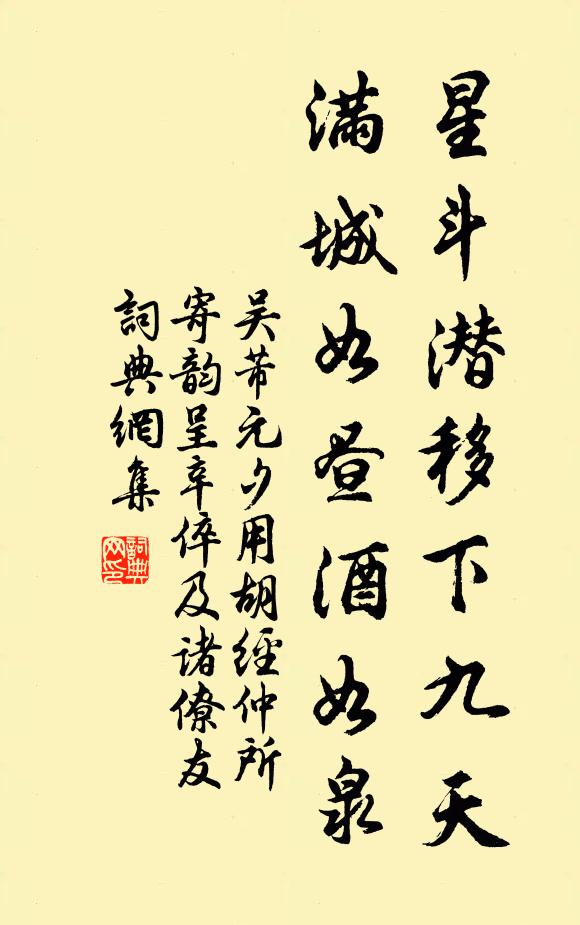 星斗潜移下九天
满城如昼酒如泉
吴芾元夕用胡經仲所
寄韵呈辛倅及诸僚友
詞典網集
詞典
网印